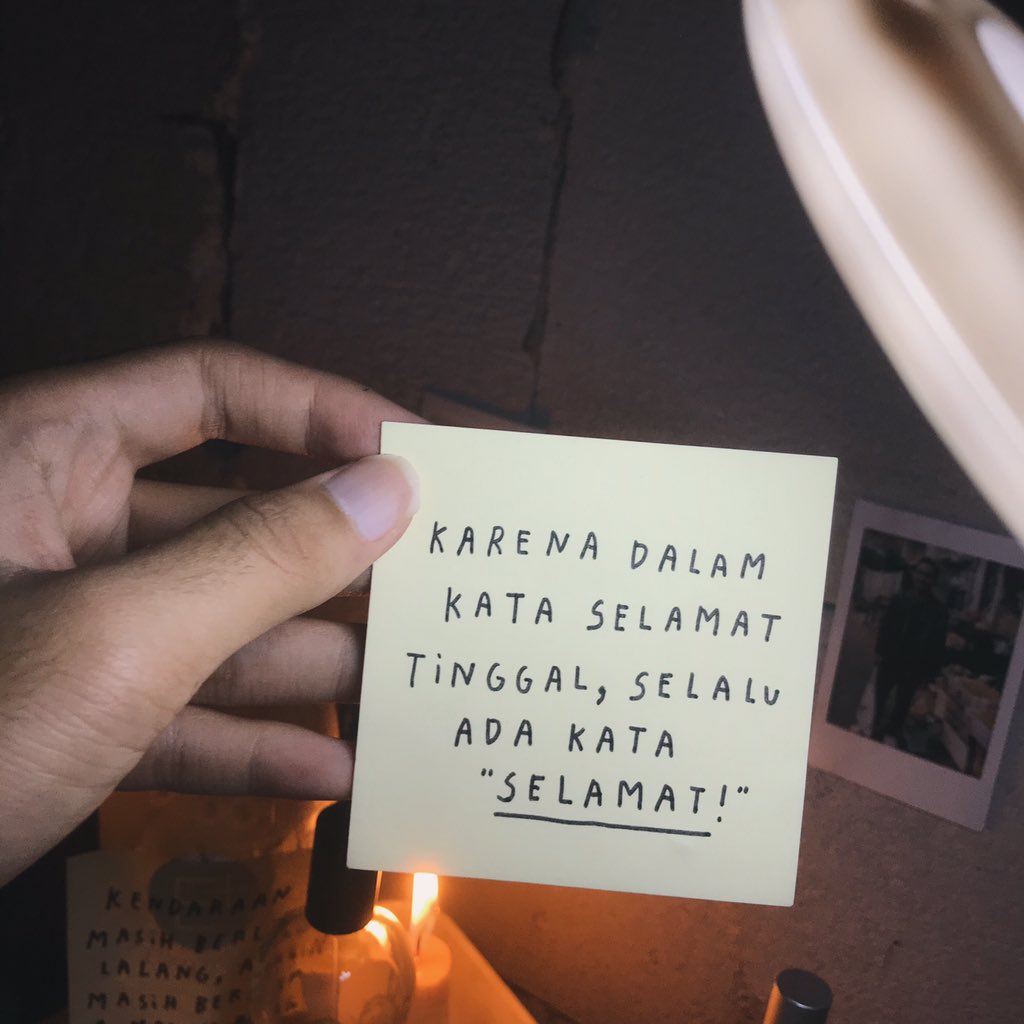 KARENA DALAM
KATA SELAMAT
TiNGGAL, SELALU
ADA KATA
"SELAMAT!"
KENDARAAN
MASiH
LALANG,
MASiH